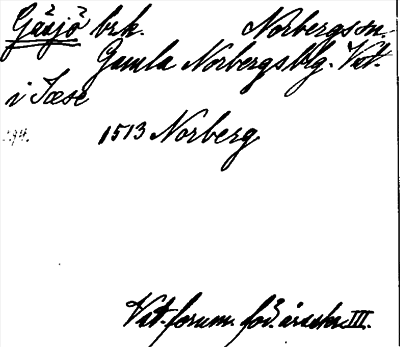 Gåsjö brk. Norbergs sn.
Gamla Norbergs blg. Vst.
i Tæse
1513 Norberg
Vst. fornm. för. årsskr. III.